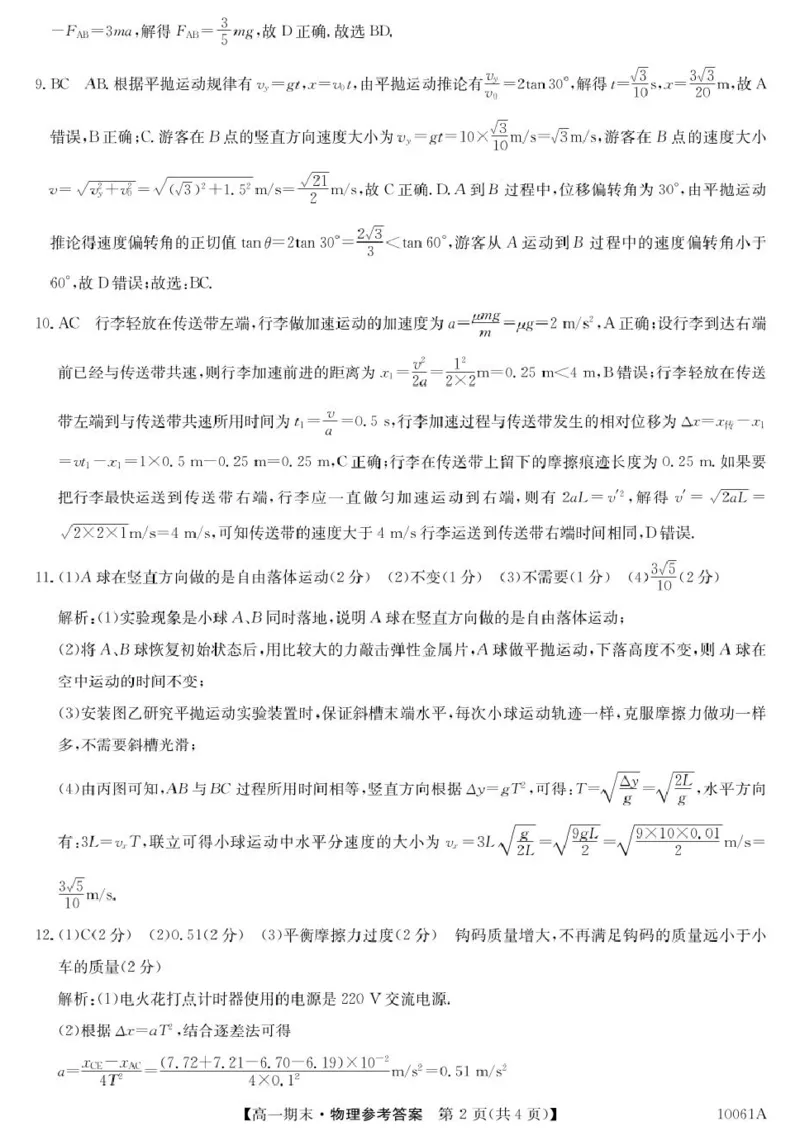 －F_AB＝3ma,解得 F_AB＝3/5 mg,故 D 正确.故选 BD.
9.BC　AB.根据平抛运动规律有 v_y＝gt,x＝v₀t,由平抛运动推论有 v_y/v₀＝2tan 30°,解得 t＝√3/10 s,x＝3√3/20 m,故 A
错误,B 正确;C.游客在 B 点的竖直方向速度大小为 v_y＝gt＝10×√3/10 m/s＝√3 m/s,游客在 B 点的速度大小
v＝√(v_y²＋v₀²)＝√((√3)²＋1.5²) m/s＝√21/2 m/s,故 C 正确.D.A 到 B 过程中,位移偏转角为 30°,由平抛运动
推论得速度偏转角的正切值 tan θ＝2tan 30°＝2√3/3＜tan 60°,游客从 A 运动到 B 过程中的速度偏转角小于
60°,故 D 错误;故选:BC.
10.AC　行李轻放在传送带左端,行李做加速运动的加速度为 a＝μmg/m＝μg＝2 m/s²,A 正确;设行李到达右端
前已经与传送带共速,则行李加速前进的距离为 x₁＝v²/2a＝1²/(2×2) m＝0.25 m＜4 m,B 错误;行李轻放在传送
带左端到与传送带共速所用时间为 t₁＝v/a＝0.5 s,行李加速过程与传送带发生的相对位移为 Δx＝x传－x₁
＝vt₁－x₁＝1×0.5 m－0.25 m＝0.25 m,C 正确;行李在传送带上留下的摩擦痕迹长度为 0.25 m.如果要
把行李最快运送到传送带右端,行李应一直做匀加速运动到右端,则有 2aL＝v′²,解得 v′＝√(2aL)＝
√(2×2×1) m/s＝4 m/s,可知传送带的速度大于 4 m/s 行李运送到传送带右端时间相同,D 错误.
11.(1)A 球在竖直方向做的是自由落体运动(2 分)　(2)不变(1 分)　(3)不需要(1 分)　(4)3√5/10(2 分)
解析:(1)实验现象是小球 A、B 同时落地,说明 A 球在竖直方向做的是自由落体运动;
(2)将 A、B 球恢复初始状态后,用比较大的力敲击弹性金属片,A 球做平抛运动,下落高度不变,则 A 球在
空中运动的时间不变;
(3)安装图乙研究平抛运动实验装置时,保证斜槽末端水平,每次小球运动轨迹一样,克服摩擦力做功一样
多,不需要斜槽光滑;
(4)由丙图可知,AB 与 BC 过程所用时间相等,竖直方向根据 Δy＝gT²,可得:T＝√(Δy/g)＝√(2L/g),水平方向
有:3L＝v_xT,联立可得小球运动中水平分速度的大小为 v_x＝3L√(g/2L)＝√(9gL/2)＝√(9×10×0.01/2) m/s＝
3√5/10 m/s.
12.(1)C(2 分)　(2)0.51(2 分)　(3)平衡摩擦力过度(2 分)　钩码质量增大,不再满足钩码的质量远小于小
车的质量(2 分)
解析:(1)电火花打点计时器使用的电源是 220 V 交流电源.
(2)根据 Δx＝aT²,结合逐差法可得
a＝(x_CE－x_AC)/4T²＝(7.72＋7.21－6.70－6.19)×10⁻²/(4×0.1²) m/s²＝0.51 m/s²
【高一期末·物理参考答案　第 2 页(共 4 页)】　10061A